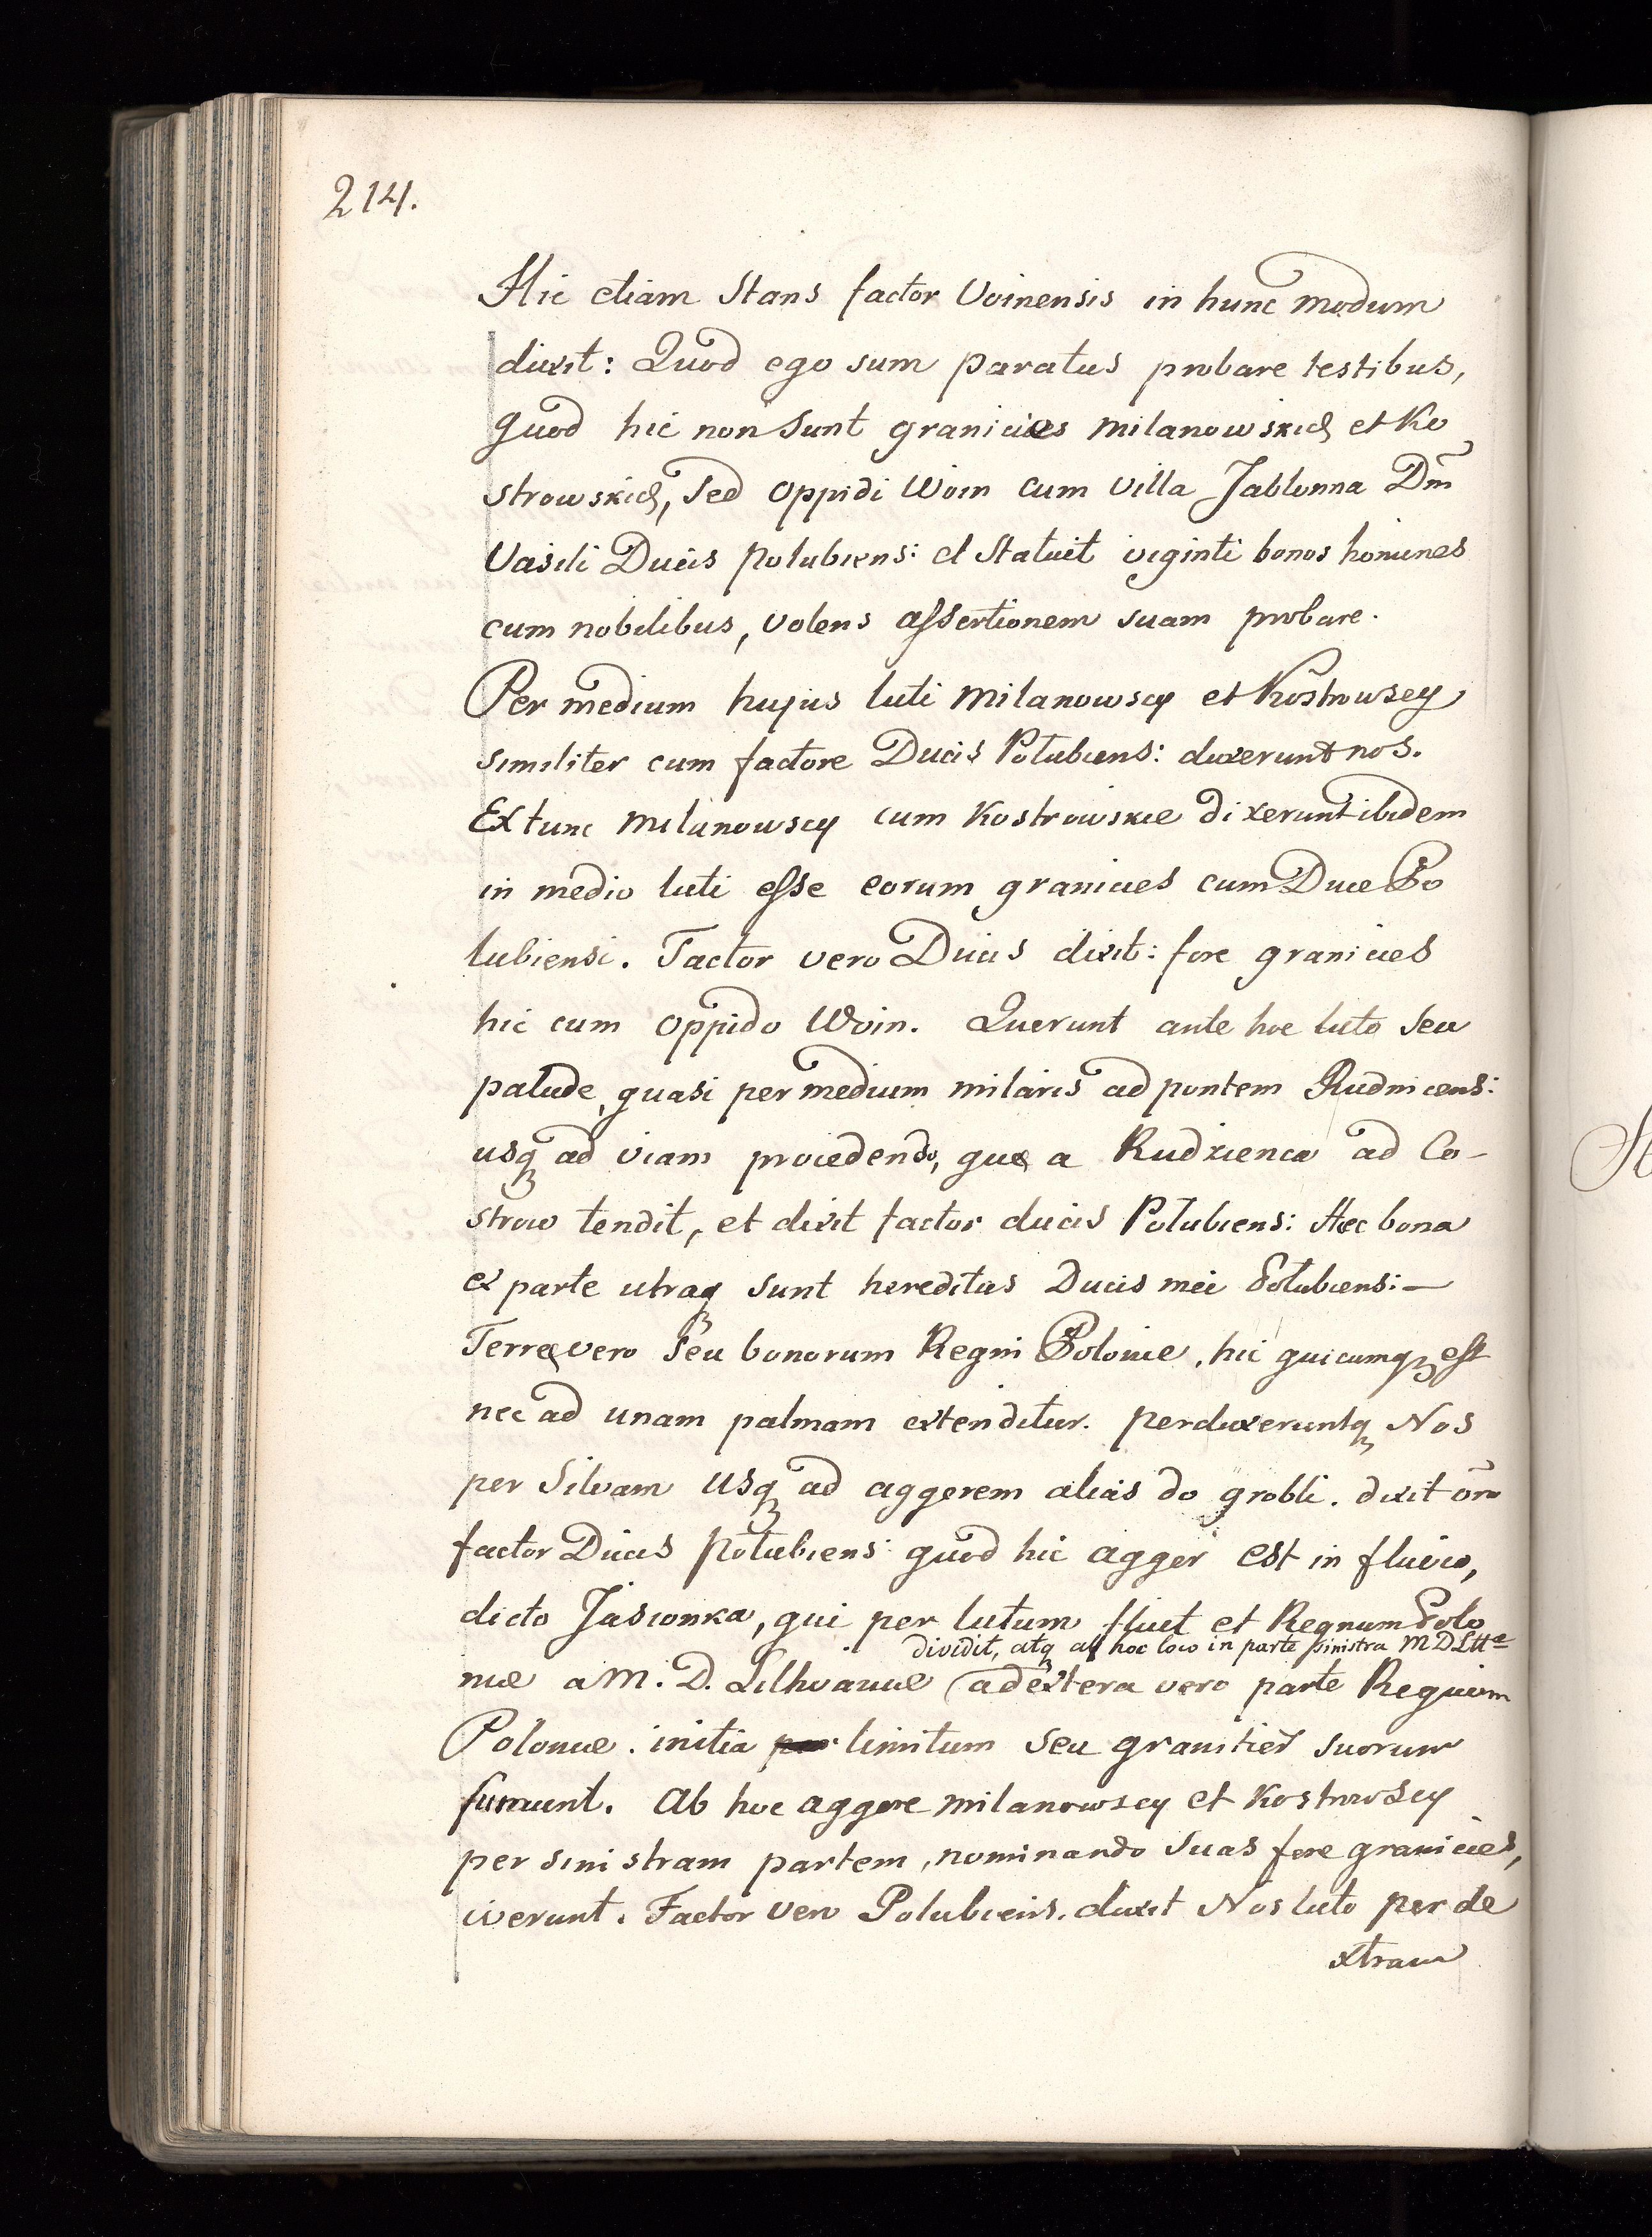 214.
Hic etiam Stans factor Voinensis in hunc modum
dixit: Quod ego sum paratus probare testibus,
quod hic non sunt granicies Milanowskich et Ko
strowskich, sed oppidi Woin cum villa Jablonna Dm̄
Vasili Ducis Polubiens: et Statuit viginti bonos homines
cum nobilibus, volens assertionem suam probare.
Per medium hujus luti Milanowscy et Kostrowscy
similiter cum factore Ducis Polubiens: duxerunt nos.
Extunc Milanowscy cum Kostrowskie dixerunt ibidem
in medio luti esse eorum granicies cum Duce Po
lubiensi. Factor vero Ducis dixit: fore granicies
hic cum oppido Woin. Querunt ante hoc luto seu
palude, quasi per medium miliaris ad pontem Rudnicens:
usq ad viam procedendo, que a Rudzienca ad Co-
strow tendit, et dixit factor ducis Polubiens: Hec bona
ex parte utraq sunt hereditas Ducis mei Polubiens: —
Terre vero seu bonorum Regni Polonie, hic quicumq est
nec ad unam palmam extenditur. perduxeruntq Nos
per Silvam usq ad aggerem alias do grobli. dixit
factor Ducis Polubiens: quod hic agger est in fluvio,
dicto Jasionka, qui per lutum fluit et Regnum Polo
dividit, atq ab hoc loco in parte sinistra M D Ltte
nie a M. D. Lithvanie (a dextera vero parte Regnum
Polonie. initia limitum seu granitier suorum
sumunt. Ab hoc aggere Milanowscy et Kostrowscy
per sinistram partem, nominando suas fore granicies,
iverunt. Factor vero Polubiens. duxit Nos luto per de
xtram